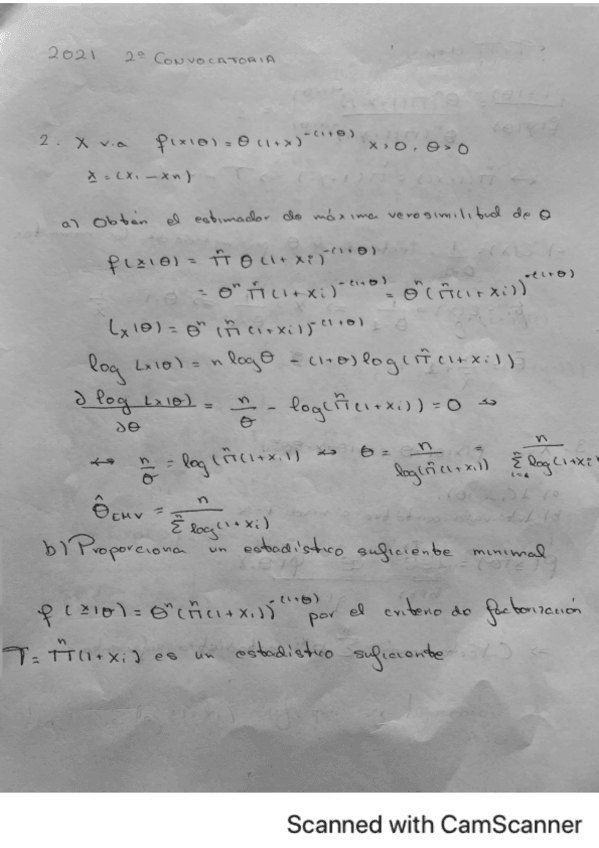 2021 2º CONVOCATORIA
2. X v.a f(x|θ) = θ (1+x)^-(1+θ) x>0, θ>0
x = (x1 - xn)
a) Obtén el estimador de máxima verosimilitud de θ
f(x|θ) = π^n θ (1+xi)^-(1+θ)
= θ^n π^n (1+xi)^-(1+θ) = θ^n (π^n (1+xi))^-(1+θ)
L(x|θ) = θ^n (π^n (1+xi))^-(1+θ)
log L(x|θ) = n log θ - (1+θ) log (π^n (1+xi))
∂ log L(x|θ) / ∂θ = n/θ - log(π^n (1+xi)) = 0 ↔
↔ n/θ = log(π^n (1+xi)) ↔ θ = n / log(π^n (1+xi)) = n / Σ^n_{i=1} log(1+xi)
θ̂ EMV = n / Σ^n log(1+xi)
b) Proporciona un estadístico suficiente minimal
f(x|θ) = θ^n (π^n (1+xi))^-(1+θ) por el criterio de factorización
T = π^n (1+xi) es un estadístico suficiente
Scanned with CamScanner